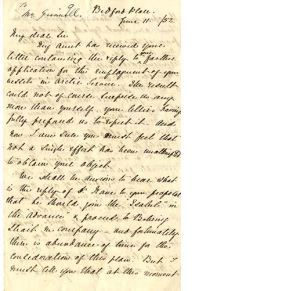 To Mr Grinnell. Bedford Place.
June 11. /52
My dear Sir
My Aunt has received your
letter containing the reply to farther
application for the employment of your
vessels in Arctic Service. The result
could not of course surprise us any
more than yourself, your letters having
fully prepared us to expect it. And
now I am sure you must feel that
not a single effort has been omitted
to obtain your object.
We shall be anxious to hear what
is the reply of Dr Kane to your proposal
that he should join the Isabel in
the Advance & proceed to Behring
Strait in company - and fortunately
there is abundance of time for the
consideration of this plan. But I
must tell you that at this moment